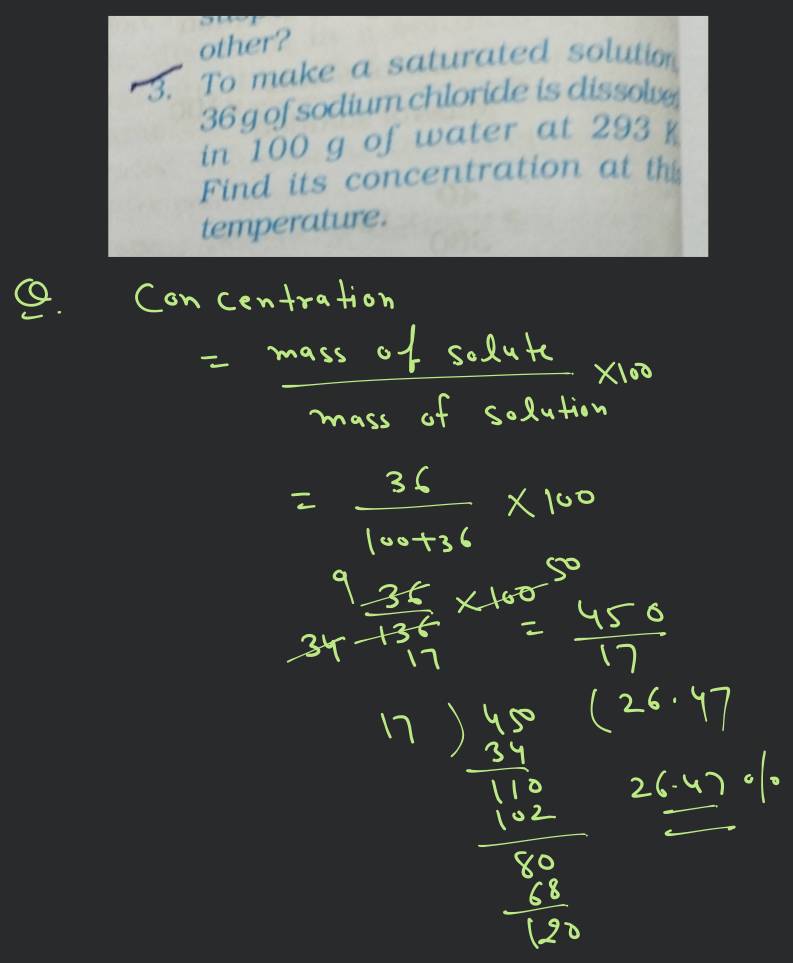 other?
3. To make a saturated solution,
36 g of sodium chloride is dissolved
in 100 g of water at 293 K
Find its concentration at this
temperature.
Q. Concentration
= mass of solute
mass of solution
×100
= 36
100+36
× 100
9 36 ×100 50
34 136
17
= 450
17
17 ) 450 ( 26.47
34
110
102
80
68
120
26.47 %